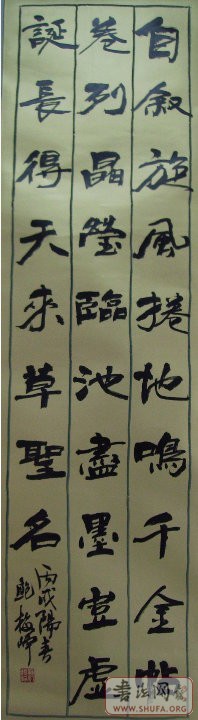 自叙旋風捲地鳴千金帖
卷列晶瑩臨池盡墨豈虛
誕長得天來草聖名
丙戌陽春
WWW.SHUFA.ORG